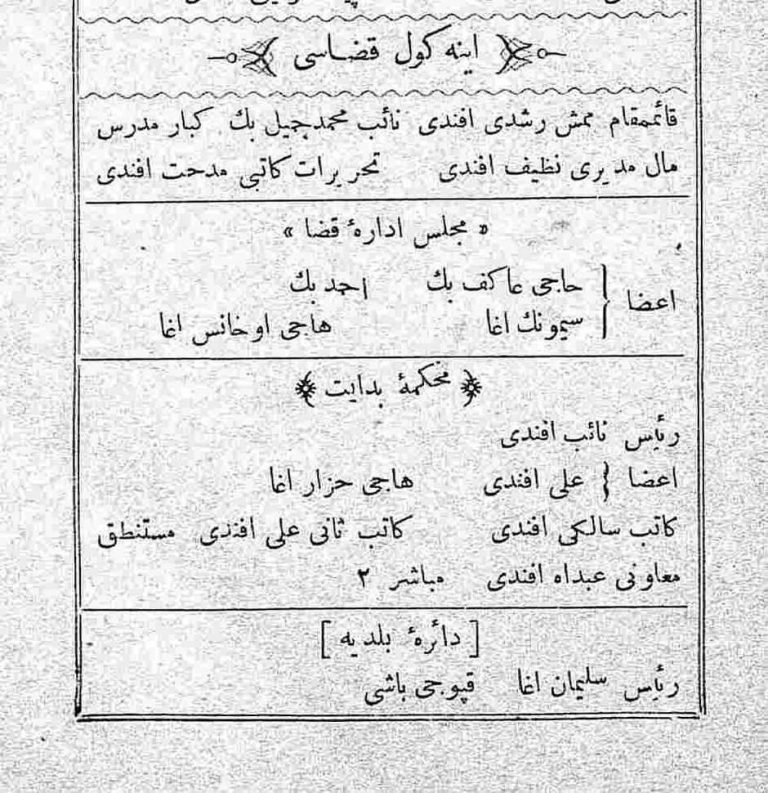 اینه كول قضاسی
قائممقام ممش رشدی افندی نائب محمدجمیل بك كبار مدرس
مال مدیری نظیف افندی تحریرات كاتبی مدحت افندی
« مجلس ادارهٔ قضا »
اعضا } حاجی عاكف بك احمد بك
سیمونك اغا هاجی اوخانس اغا
محكمهٔ بدایت
رئیس نائب افندی
اعضا } علی افندی هاجی حزار اغا
كاتب سالكی افندی كاتب ثانی علی افندی مستنطق
معاونی عبداه افندی مباشر ٢
[ دائرهٔ بلدیه ]
رئیس سلیمان اغا قپوجی باشی